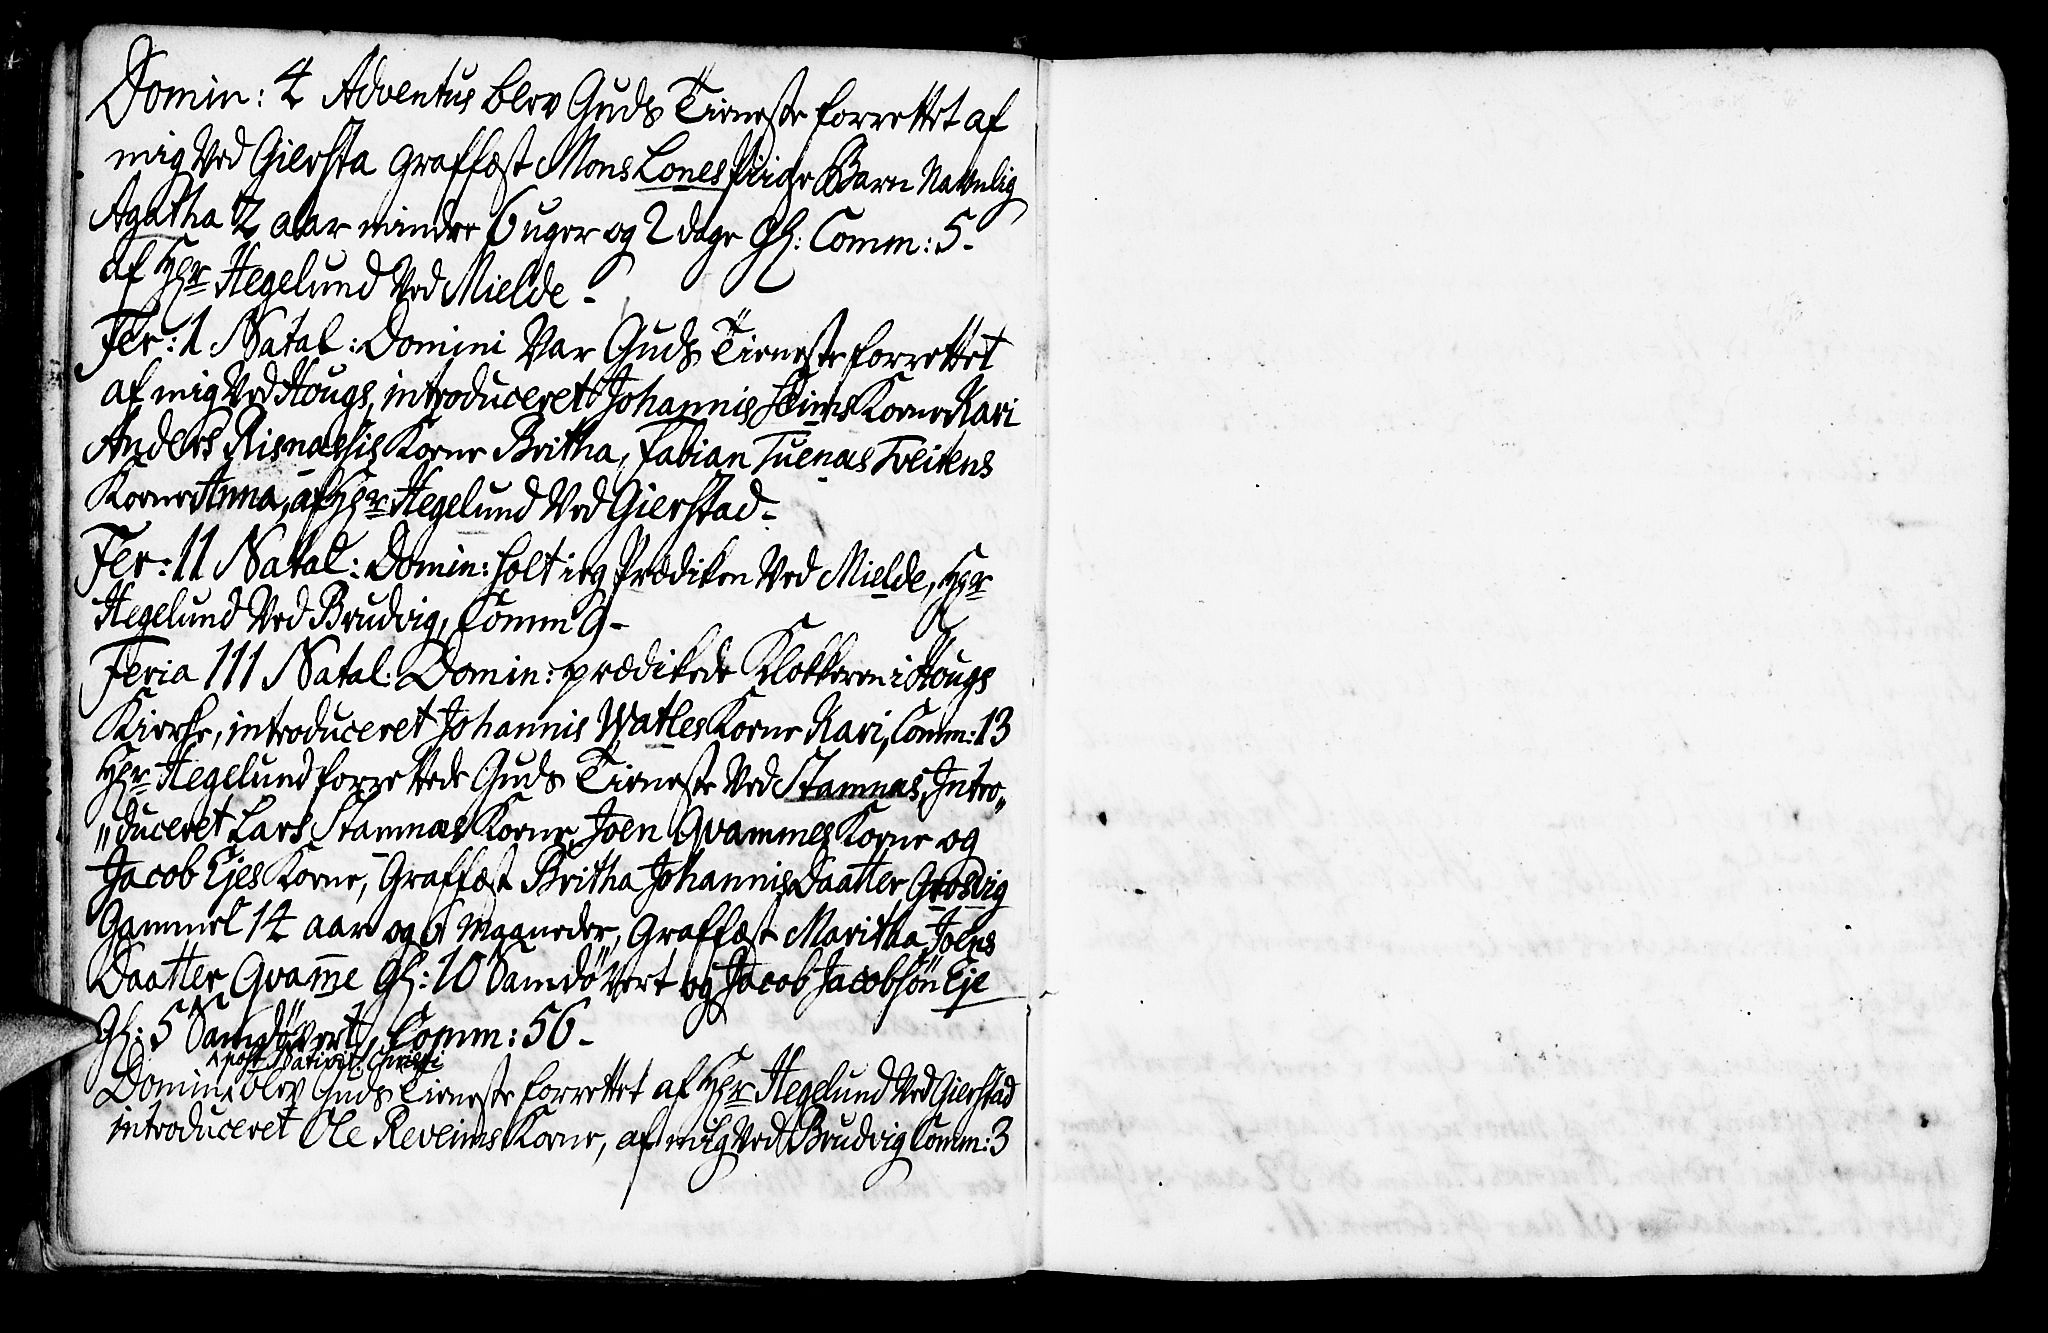 Domin: 4 Adventus blev Guds Tieneste forrettet af
mig ved Giersta graffæst Mons Lones Piige Barn Navnlig
Agatha 2 aar mindre 6 uger og 2 dage gl: Comm: 5 -
af Hr Hegelund ved Mielde -
Fer: 1 Natal: Domini Var Guds Tieneste forrettet
af mig ved Hougs, introduceret Johannis Kone Kari
Anders Risnæssis Kone Britha, Fabian Tuenæs Tveitens
Kone Anna, af Hr Hegelund ved Gierstad -
Fer: 11 Natal: Domin: holt ieg Prædiken ved Mielde, Hr
Hegelund ved Brudvig, Comm 9 -
Feria 111 Natal: Domin: prædikede Klokkeren i Hougs
Kirche, introduceret Johannis Watles Kone Kari, Comm: 13
Hr Hegelund forrettede Guds Tieneste ved Stamnæs, Intro„
„duceret Lars Stamnæs Kone, Joen Qvammes Kone og
Jacob Ejes Kone, Graffæst Britha Johannis Daatter Grosvig
Gammel 14 aar og 6 maaneder, Graffæst Maritha Joens
Daatter Qvam̄e gl: 10 Samdøvert og Jacob Jacobsøn Eje
gl: 5 Samdøvert, Comm: 56 -
^ post Nativit: Christi
Domin: ^ blev Guds Tieneste forrettet af Hr Hegelund ved Gierstad
introduceret Ole Reveims Kone, af mig ved Brudvig Comm: 3